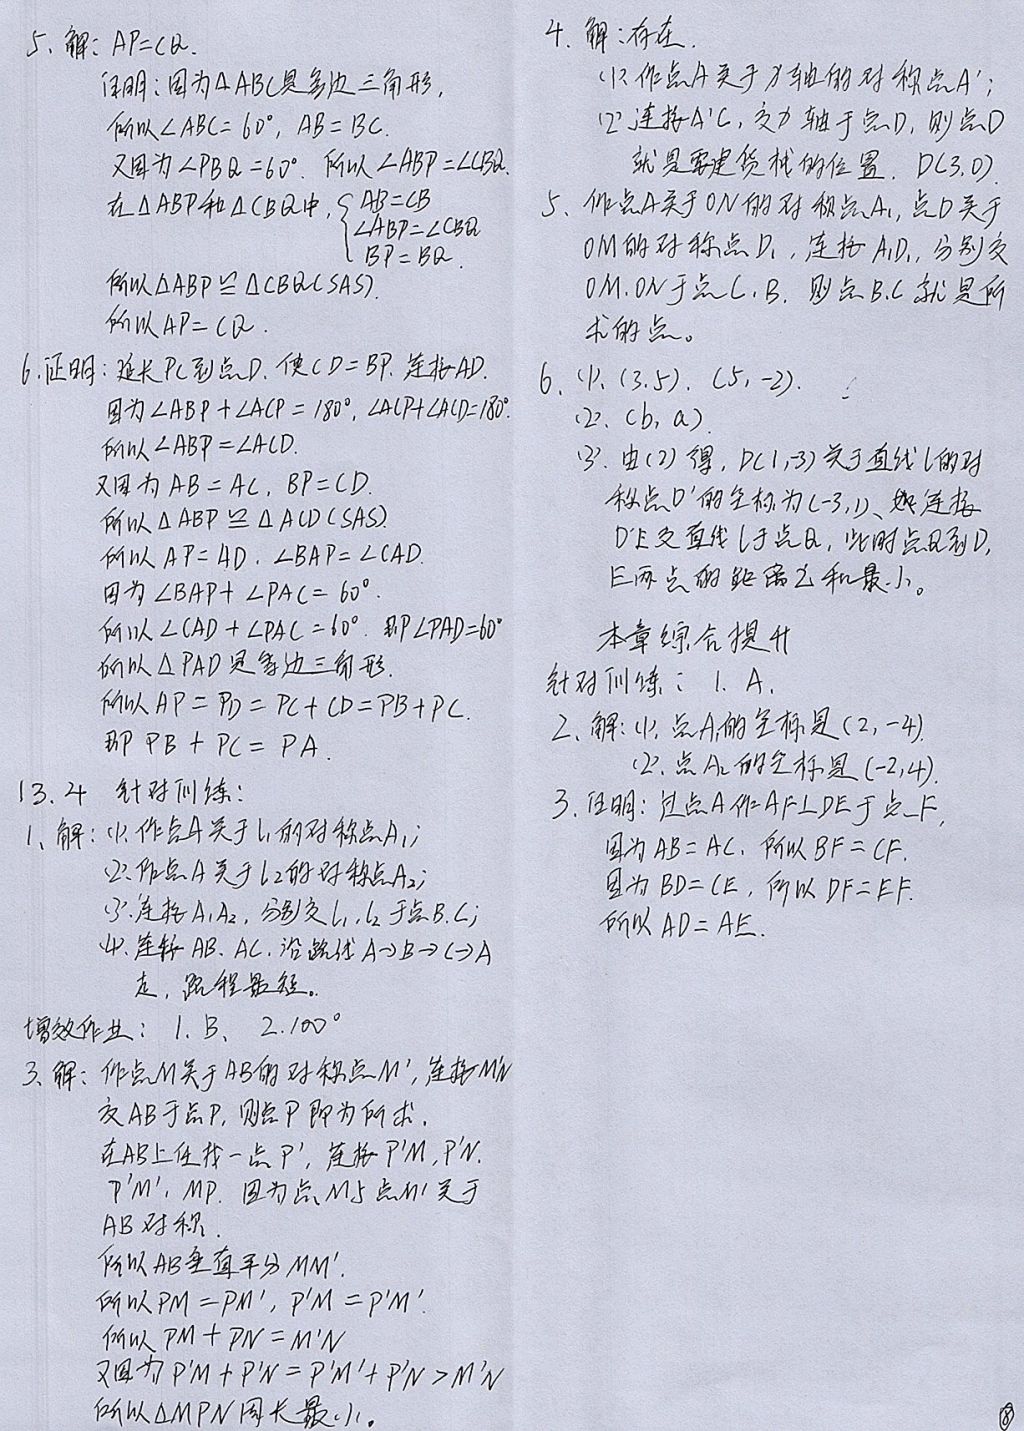 5、解：AP=CQ.
证明：因为△ABC是等边三角形，
所以∠ABC=60°，AB=BC.
又因为∠PBQ=60°. 所以∠ABP=∠CBQ.
在△ABP和△CBQ中，{AB=CB
∠ABP=∠CBQ
BP=BQ.
所以△ABP≌△CBQ(SAS).
所以AP=CQ.
6.证明：延长PC到点D. 使CD=BP. 连接AD.
因为∠ABP+∠ACP=180°，∠ACP+∠ACD=180°.
所以∠ABP=∠ACD.
又因为AB=AC，BP=CD.
所以△ABP≌△ACD(SAS)
所以AP=AD. ∠BAP=∠CAD.
因为∠BAP+∠PAC=60°.
所以∠CAD+∠PAC=60°. 即∠PAD=60°
所以△PAD是等边三角形.
所以AP=PD=PC+CD=PB+PC.
即PB+PC=PA.
13.4 针对训练：
1、解：(1).作点A关于l₁的对称点A₁；
(2).作点A关于l₂的对称点A₂；
(3).连接A₁A₂，分别交l₁、l₂于点B.C；
(4).连接AB、AC. 沿路线A→B→C→A
走，路程最短。
增效作业：1.B、2.100°
3、解：作点M关于AB的对称点M'，连接M'N
交AB于点P，则点P即为所求.
在AB上任找一点P'，连接P'M，P'N.
P'M'、MP. 因为点M与点M'关于
AB对称.
所以AB垂直平分MM'.
所以PM=PM'，P'M=P'M'.
所以PM+PN=M'N
又因为P'M+P'N=P'M'+P'N>M'N
所以△MPN周长最小。
4. 解：存在.
(1).作点A关于x轴的对称点A'；
(2).连接A'C，交x轴于点D，则点D
就是要建货栈的位置. D(3,0).
5、作点A关于ON的对称点A₁，点D关于
OM的对称点D₁，连接A₁D₁，分别交
OM.ON于点C、B. 则点B.C就是所
求的点。
6、(1).(3.5). (5,-2).
(2).(b,a).
(3).由(2)得，D(1,-3)关于直线l的对
称点D'的坐标为(-3,1)、连接
D'E交直线l于点Q，此时点Q到D,
E两点的距离之和最小。
本章综合提升
针对训练：1.A.
2、解：(1).点A₁的坐标是(2,-4).
(2).点A₂的坐标是(-2,4).
3.证明：过点A作AF⊥DE于点F，
因为AB=AC. 所以BF=CF.
因为BD=CE，所以DF=EF.
所以AD=AE.
⑧